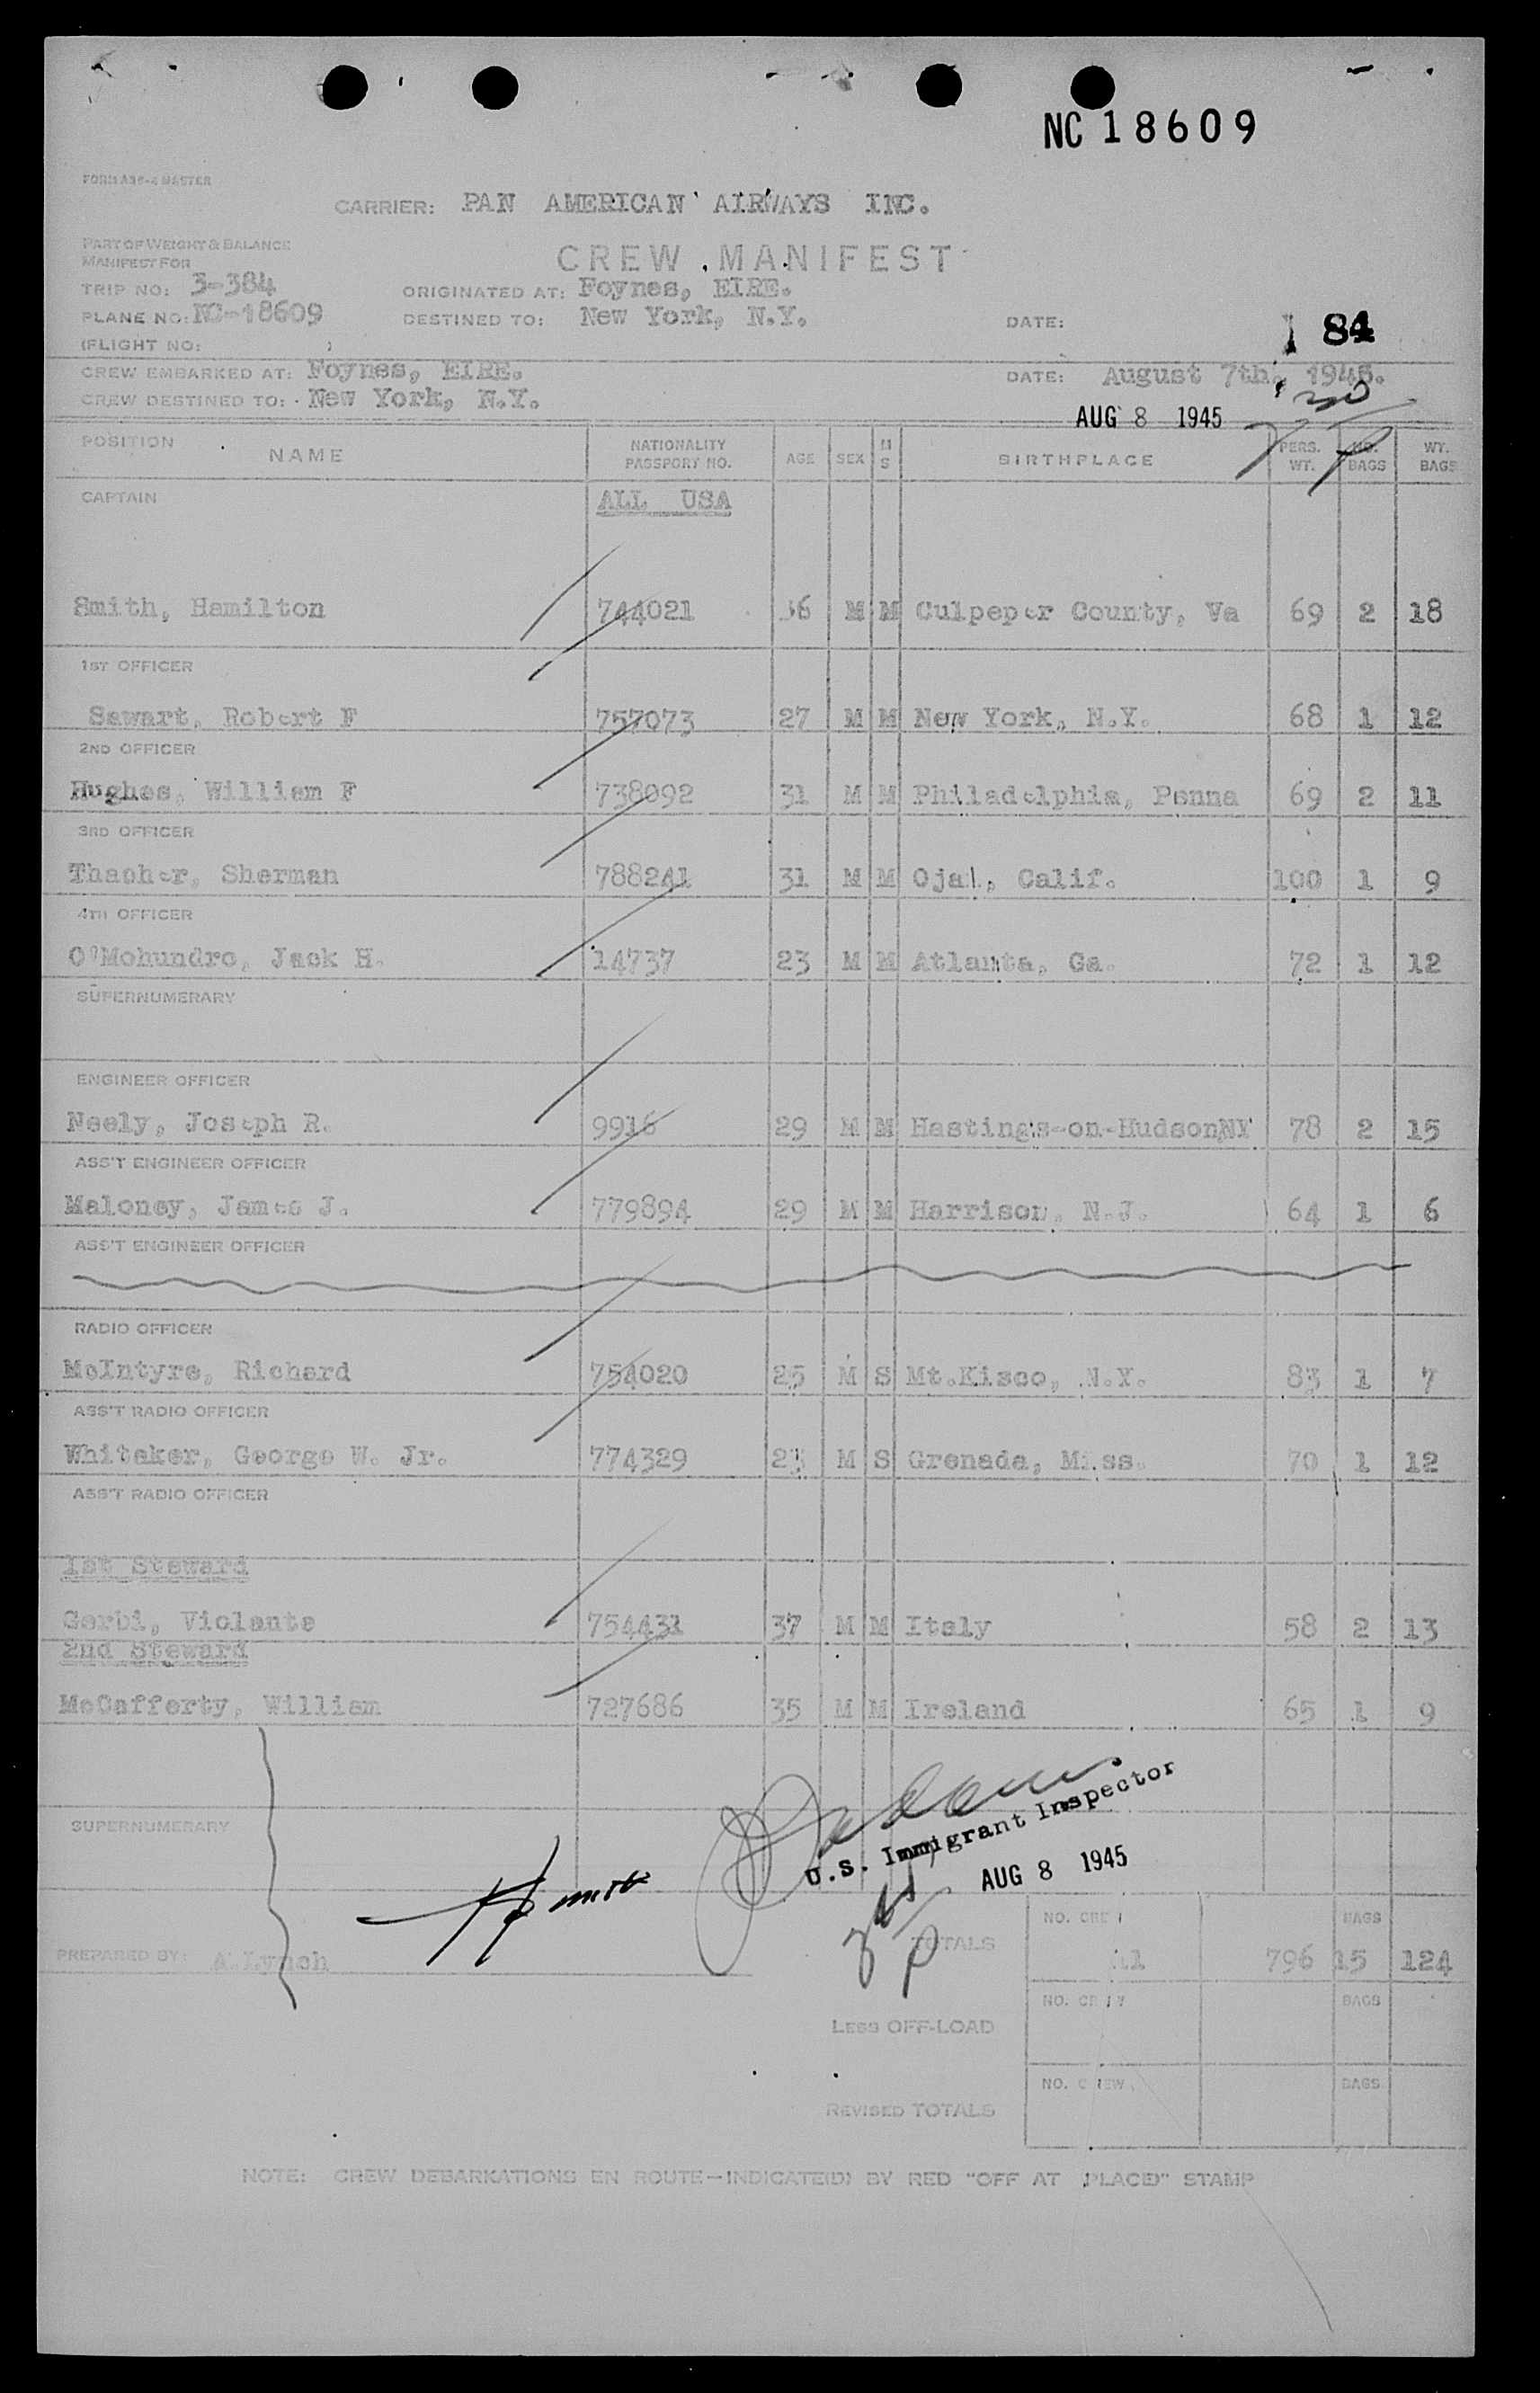 NC 18609
FORM A36-4 MASTER
CARRIER: PAN AMERICAN AIRWAYS INC.
PART OF WEIGHT & BALANCE
MANIFEST FOR
CREW MANIFEST
TRIP NO: 3-384 ORIGINATED AT: Foynes, EIRE.
PLANE NO: NC-18609 DESTINED TO: New York, N.Y. DATE: 184
(FLIGHT NO: )
CREW EMBARKED AT: Foynes, EIRE. DATE: August 7th, 1945.
CREW DESTINED TO: New York, N.Y.
AUG 8 1945
POSITION NAME NATIONALITY PASSPORT NO. AGE SEX M S BIRTHPLACE PERS. WT. NO. BAGS WT. BAGS
CAPTAIN ALL USA
Smith, Hamilton 744021 36 M M Culpeper County, Va 69 2 18
1ST OFFICER
Sewart, Robert F 757073 27 M M New York, N.Y. 68 1 12
2ND OFFICER
Hughes, William F 738092 31 M M Philadelphia, Penna 69 2 11
3RD OFFICER
Thacher, Sherman 788241 31 M M Ojai, Calif. 100 1 9
4TH OFFICER
O'Mohundro, Jack H. 14737 23 M M Atlanta, Ga. 72 1 12
SUPERNUMERARY
ENGINEER OFFICER
Neely, Joseph R. 9916 29 M M Hastings-on-HudsonNY 78 2 15
ASS'T ENGINEER OFFICER
Maloney, James J. 779894 29 M M Harrison, N.J. 64 1 6
ASS'T ENGINEER OFFICER
RADIO OFFICER
McIntyre, Richard 754020 25 M S Mt.Kisco, N.Y. 83 1 7
ASS'T RADIO OFFICER
Whitaker, George W. Jr. 774329 23 M S Grenada, Miss. 70 1 12
ASS'T RADIO OFFICER
1st Steward
Garbi, Violante 754431 37 M M Italy 58 2 13
2nd Steward
McCafferty, William 727686 35 M M Ireland 65 1 9
U.S. Immigrant Inspector
SUPERNUMERARY
AUG 8 1945
NO. CREW BAGS
PREPARED BY: A Lynch TOTALS 11 796 15 124
NO. CREW BAGS
LESS OFF-LOAD
NO. CREW BAGS
REVISED TOTALS
NOTE: CREW DEBARKATIONS EN ROUTE—INDICATE(D) BY RED "OFF AT (PLACE)" STAMP